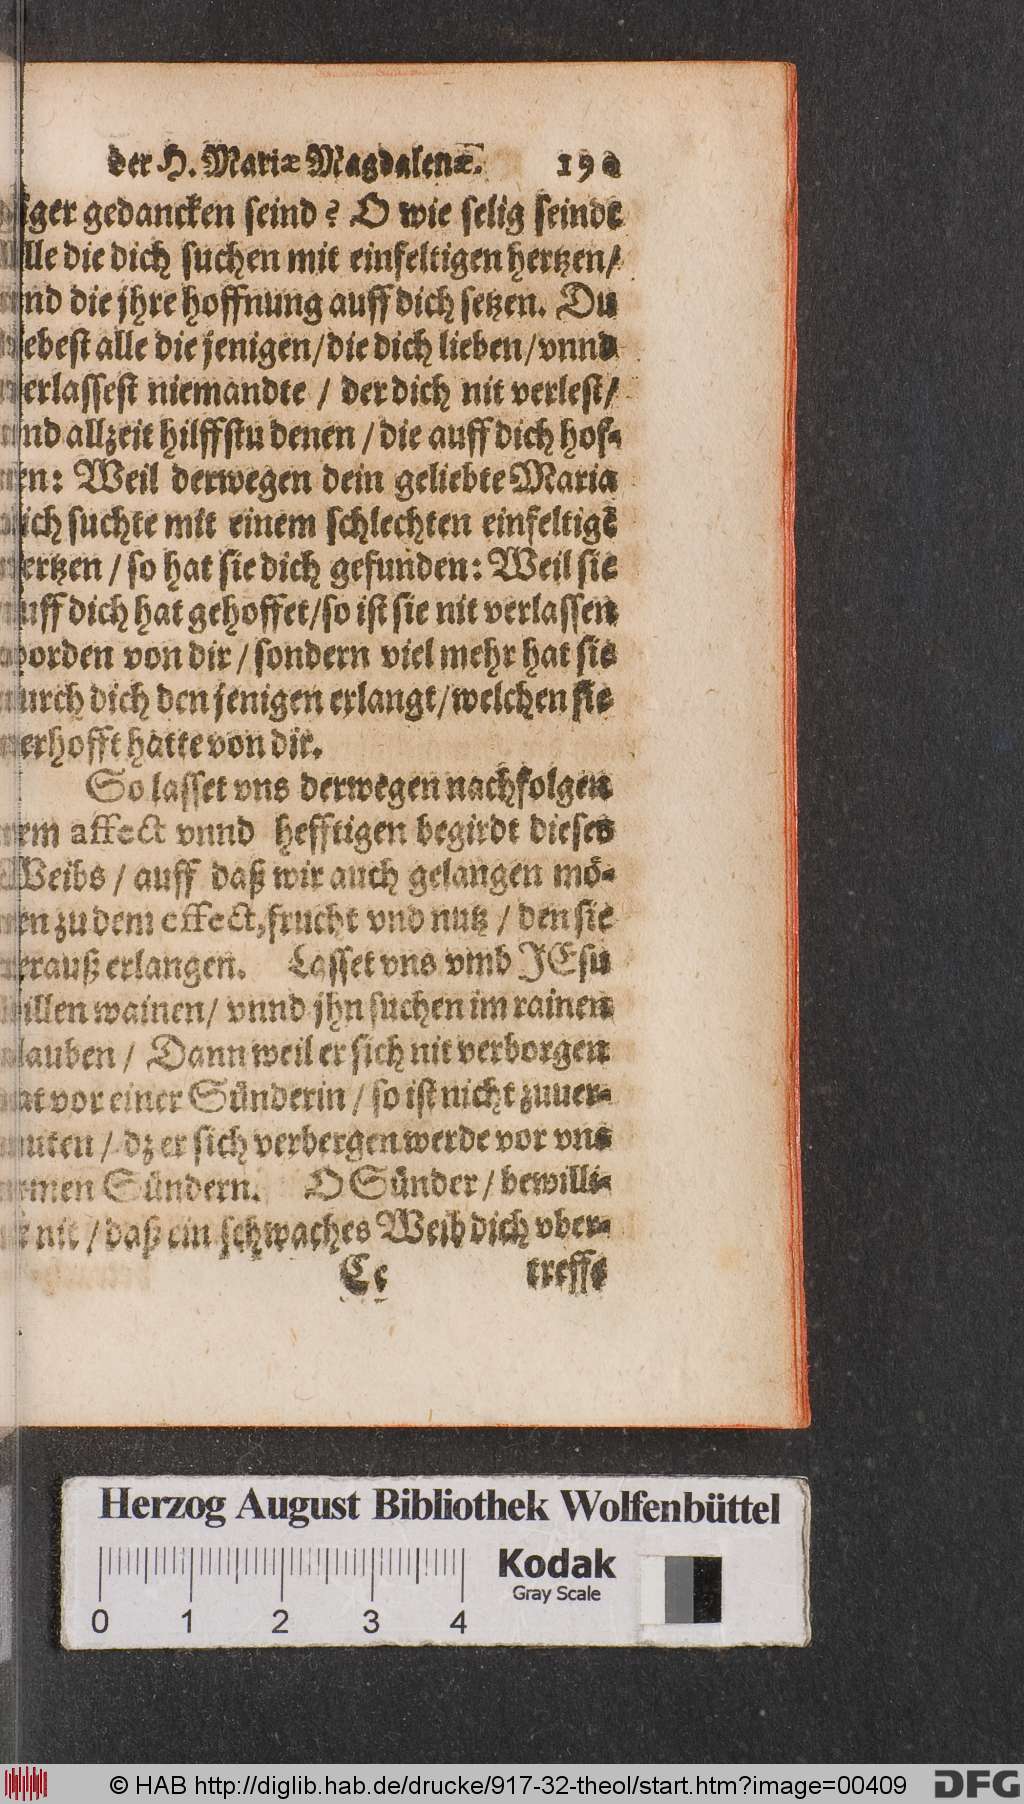 der H. Mariæ Magdalenæ. 19
ger gedancken seind? O wie selig seindt
lle die dich suchen mit einfeltigen hertzen/
nd die jhre hoffnung auff dich setzen. Du
ebest alle die jenigen/die dich lieben/vnnd
erlassest niemandte / der dich nit verlest/
nd allzeit hilffstu denen / die auff dich hof-
en: Weil derwegen dein geliebte Maria
ich suchte mit einem schlechten einfeltigẽ
ertzen / so hat sie dich gefunden: Weil sie
uff dich hat gehoffet/so ist sie nit verlassen
orden von dir / sondern viel mehr hat sie
urch dich den jenigen erlangt/welchen sie
erhofft hatte von dir.
So lasset vns derwegen nachfolgen
em affect vnnd hefftigen begirdt dieses
Weibs / auff daß wir auch gelangen mö-
en zu dem effect, frucht vnd nutz / den sie
erauß erlangen. Lasset vns vmb JEsu
illen wainen/ vnnd jhn suchen im rainen
lauben / Dann weil er sich nit verborgen
at vor einer Sünderin / so ist nicht zuuer-
muten / dz er sich verbergen werde vor vns
rmen Sündern. O Sünder / bewilli-
nit / daß ein schwaches Weib dich vber-
Cc treffe
Herzog August Bibliothek Wolfenbüttel
Kodak
Gray Scale
0 1 2 3 4
© HAB http://diglib.hab.de/drucke/917-32-theol/start.htm?image=00409 DFG